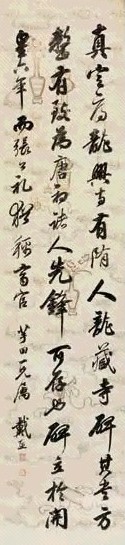 真定府龍興寺有隋人龍藏寺碑其書方
整有致為唐初諸人先鋒可存也碑立於開
皇六年而張公礼猶稱齊官 田一兄属 戴熙